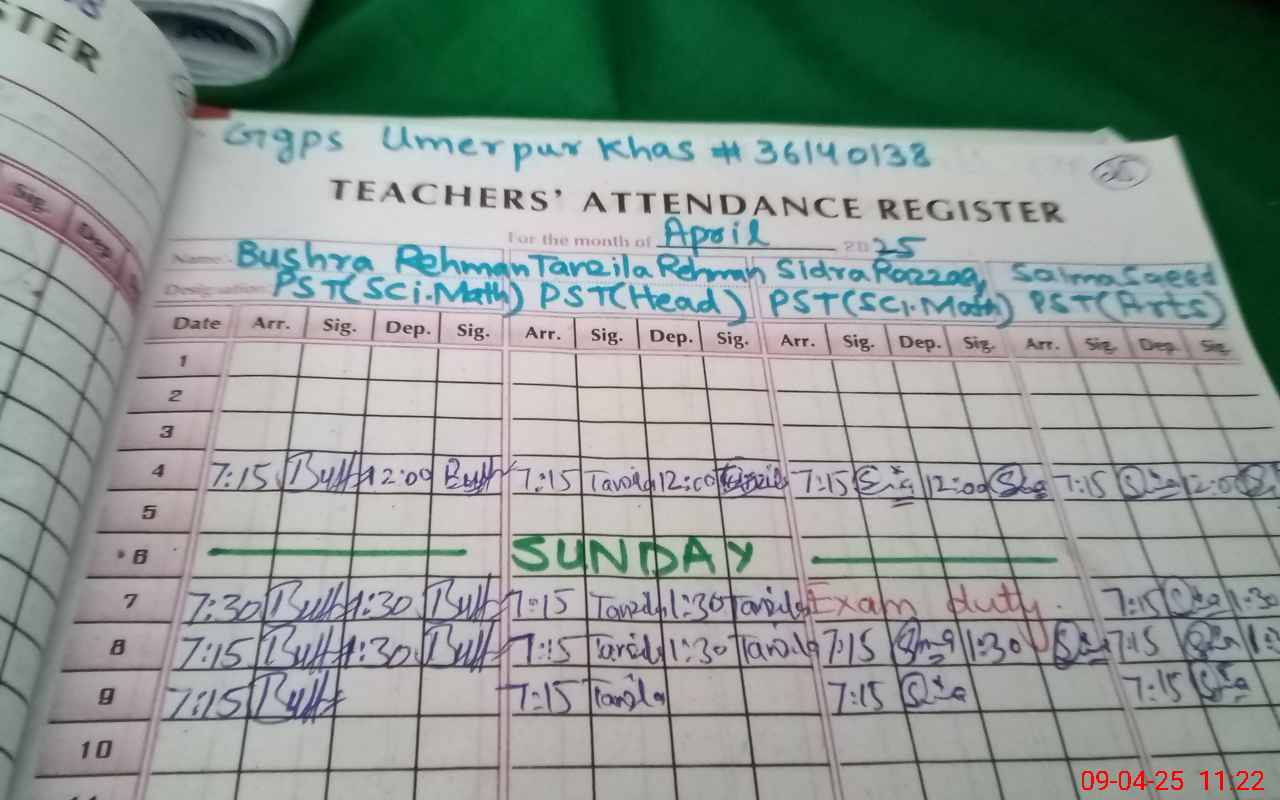 STER
Sig. Dep.
GGPS Umerpur Khas # 36140138
TEACHERS' ATTENDANCE REGISTER
For the month of April 2025
Name: Bushra Rehman Tanzila Rehman Sidra Razzaq Salma Saeed
Designation PST(SCi.Math) PST(Head) PST(SCi.Math) PST(Arts)
Date Arr. Sig. Dep. Sig. Arr. Sig. Dep. Sig. Arr. Sig. Dep. Sig. Arr. Sig. Dep. Sig.
1
2
3
4 7:15 12:00 7:15 Tanzila 12:00 Tanzila 7:15 12:00 7:15 12:0
5
6 SUNDAY
7 7:30 1:30 7:15 Tanzila 1:30 Tanzila Exam duty. 7:15 1:30
8 7:15 1:30 7:15 Tanzila 1:30 Tanzila 7:15 1:30 7:15
9 7:15 7:15 Tanzila 7:15 7:15
10
09-04-25 11:22